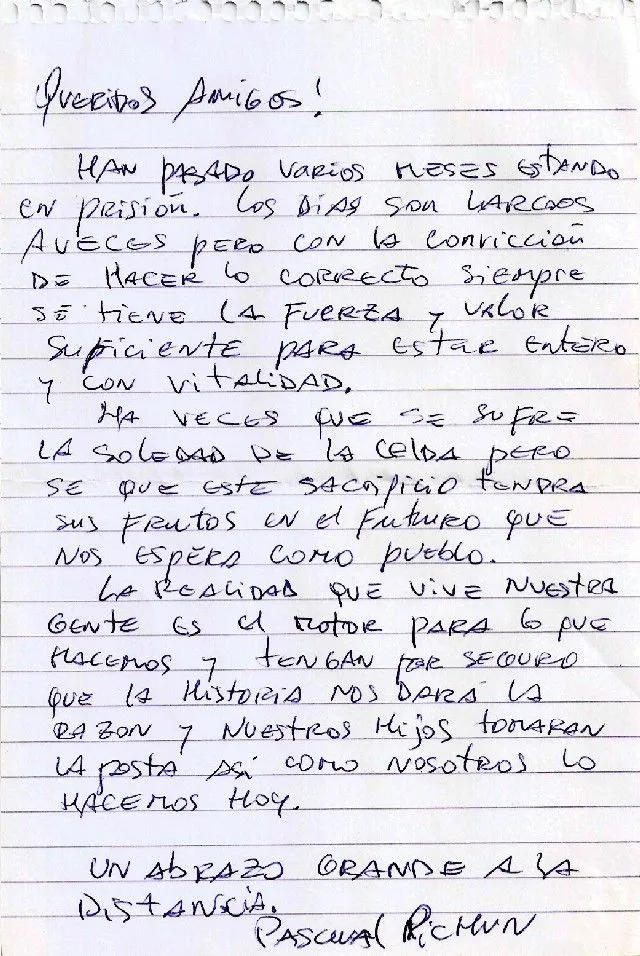 ¡Queridos Amigos!
Han pasado varios meses estando
en prisión. Los dias son largos
aveces pero con la convicción
de hacer lo correcto siempre
se tiene la fuerza y valor
suficiente para estar entero
y con vitalidad.
Ha veces que se sufre
la soledad de la celda pero
se que este sacrificio tendra
sus frutos en el futuro que
nos espera como pueblo.
La realidad que vive nuestra
gente es el motor para lo que
hacemos y tengan por seguro
que la historia nos dará la
razon y nuestros hijos tomaran
la posta asi como nosotros lo
hacemos hoy.
Un abrazo grande a la
distancia.
Pascual Pichun